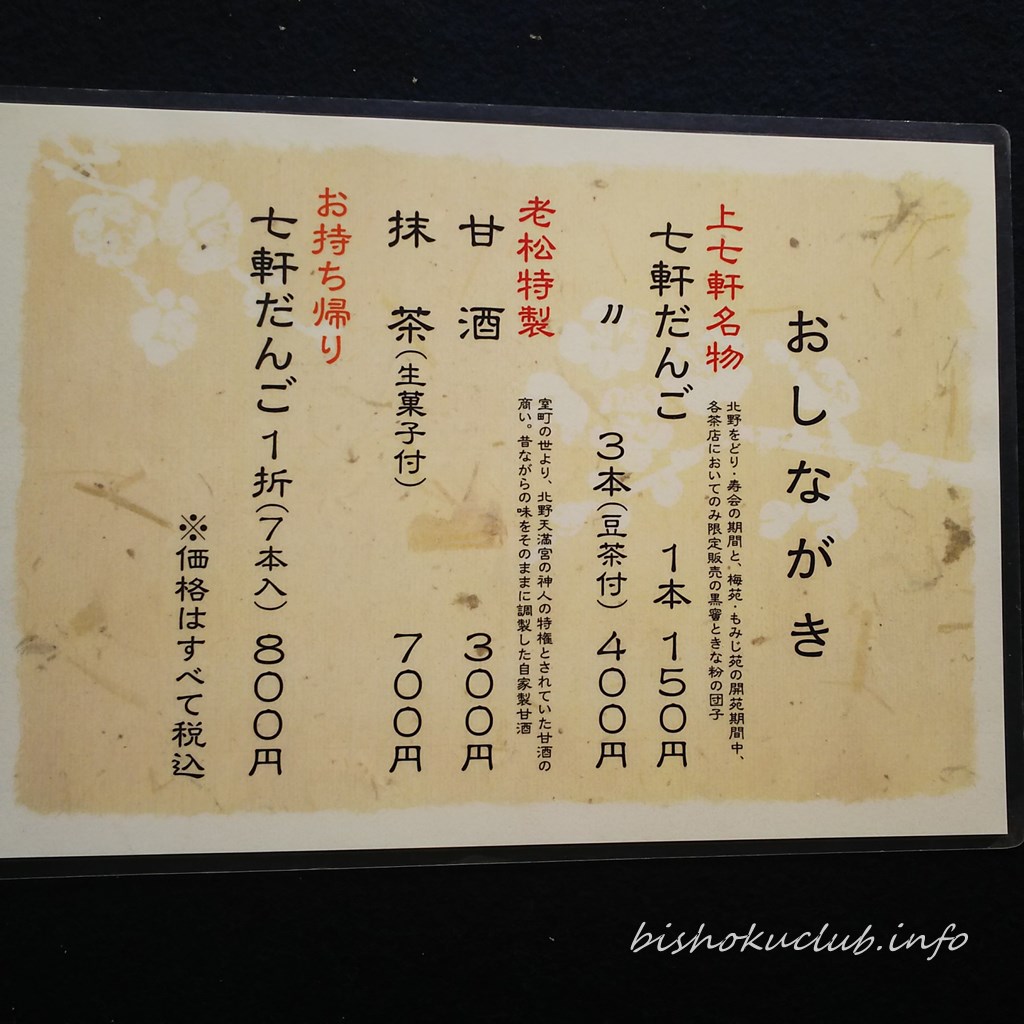 おしながき
上七軒名物
北野をどり・寿会の期間と、梅苑・もみじ苑の開苑期間中、
各茶店においてのみ限定販売の黒蜜ときな粉の団子
七軒だんご 1本 150円
〃 3本(豆茶付) 400円
老松特製
室町の世より、北野天満宮の神人の特権とされていた甘酒の
商い。昔ながらの味をそのままに調製した自家製甘酒
甘酒 300円
抹茶(生菓子付) 700円
お持ち帰り
七軒だんご 1折(7本入) 800円
※価格はすべて税込
bishokuclub.info